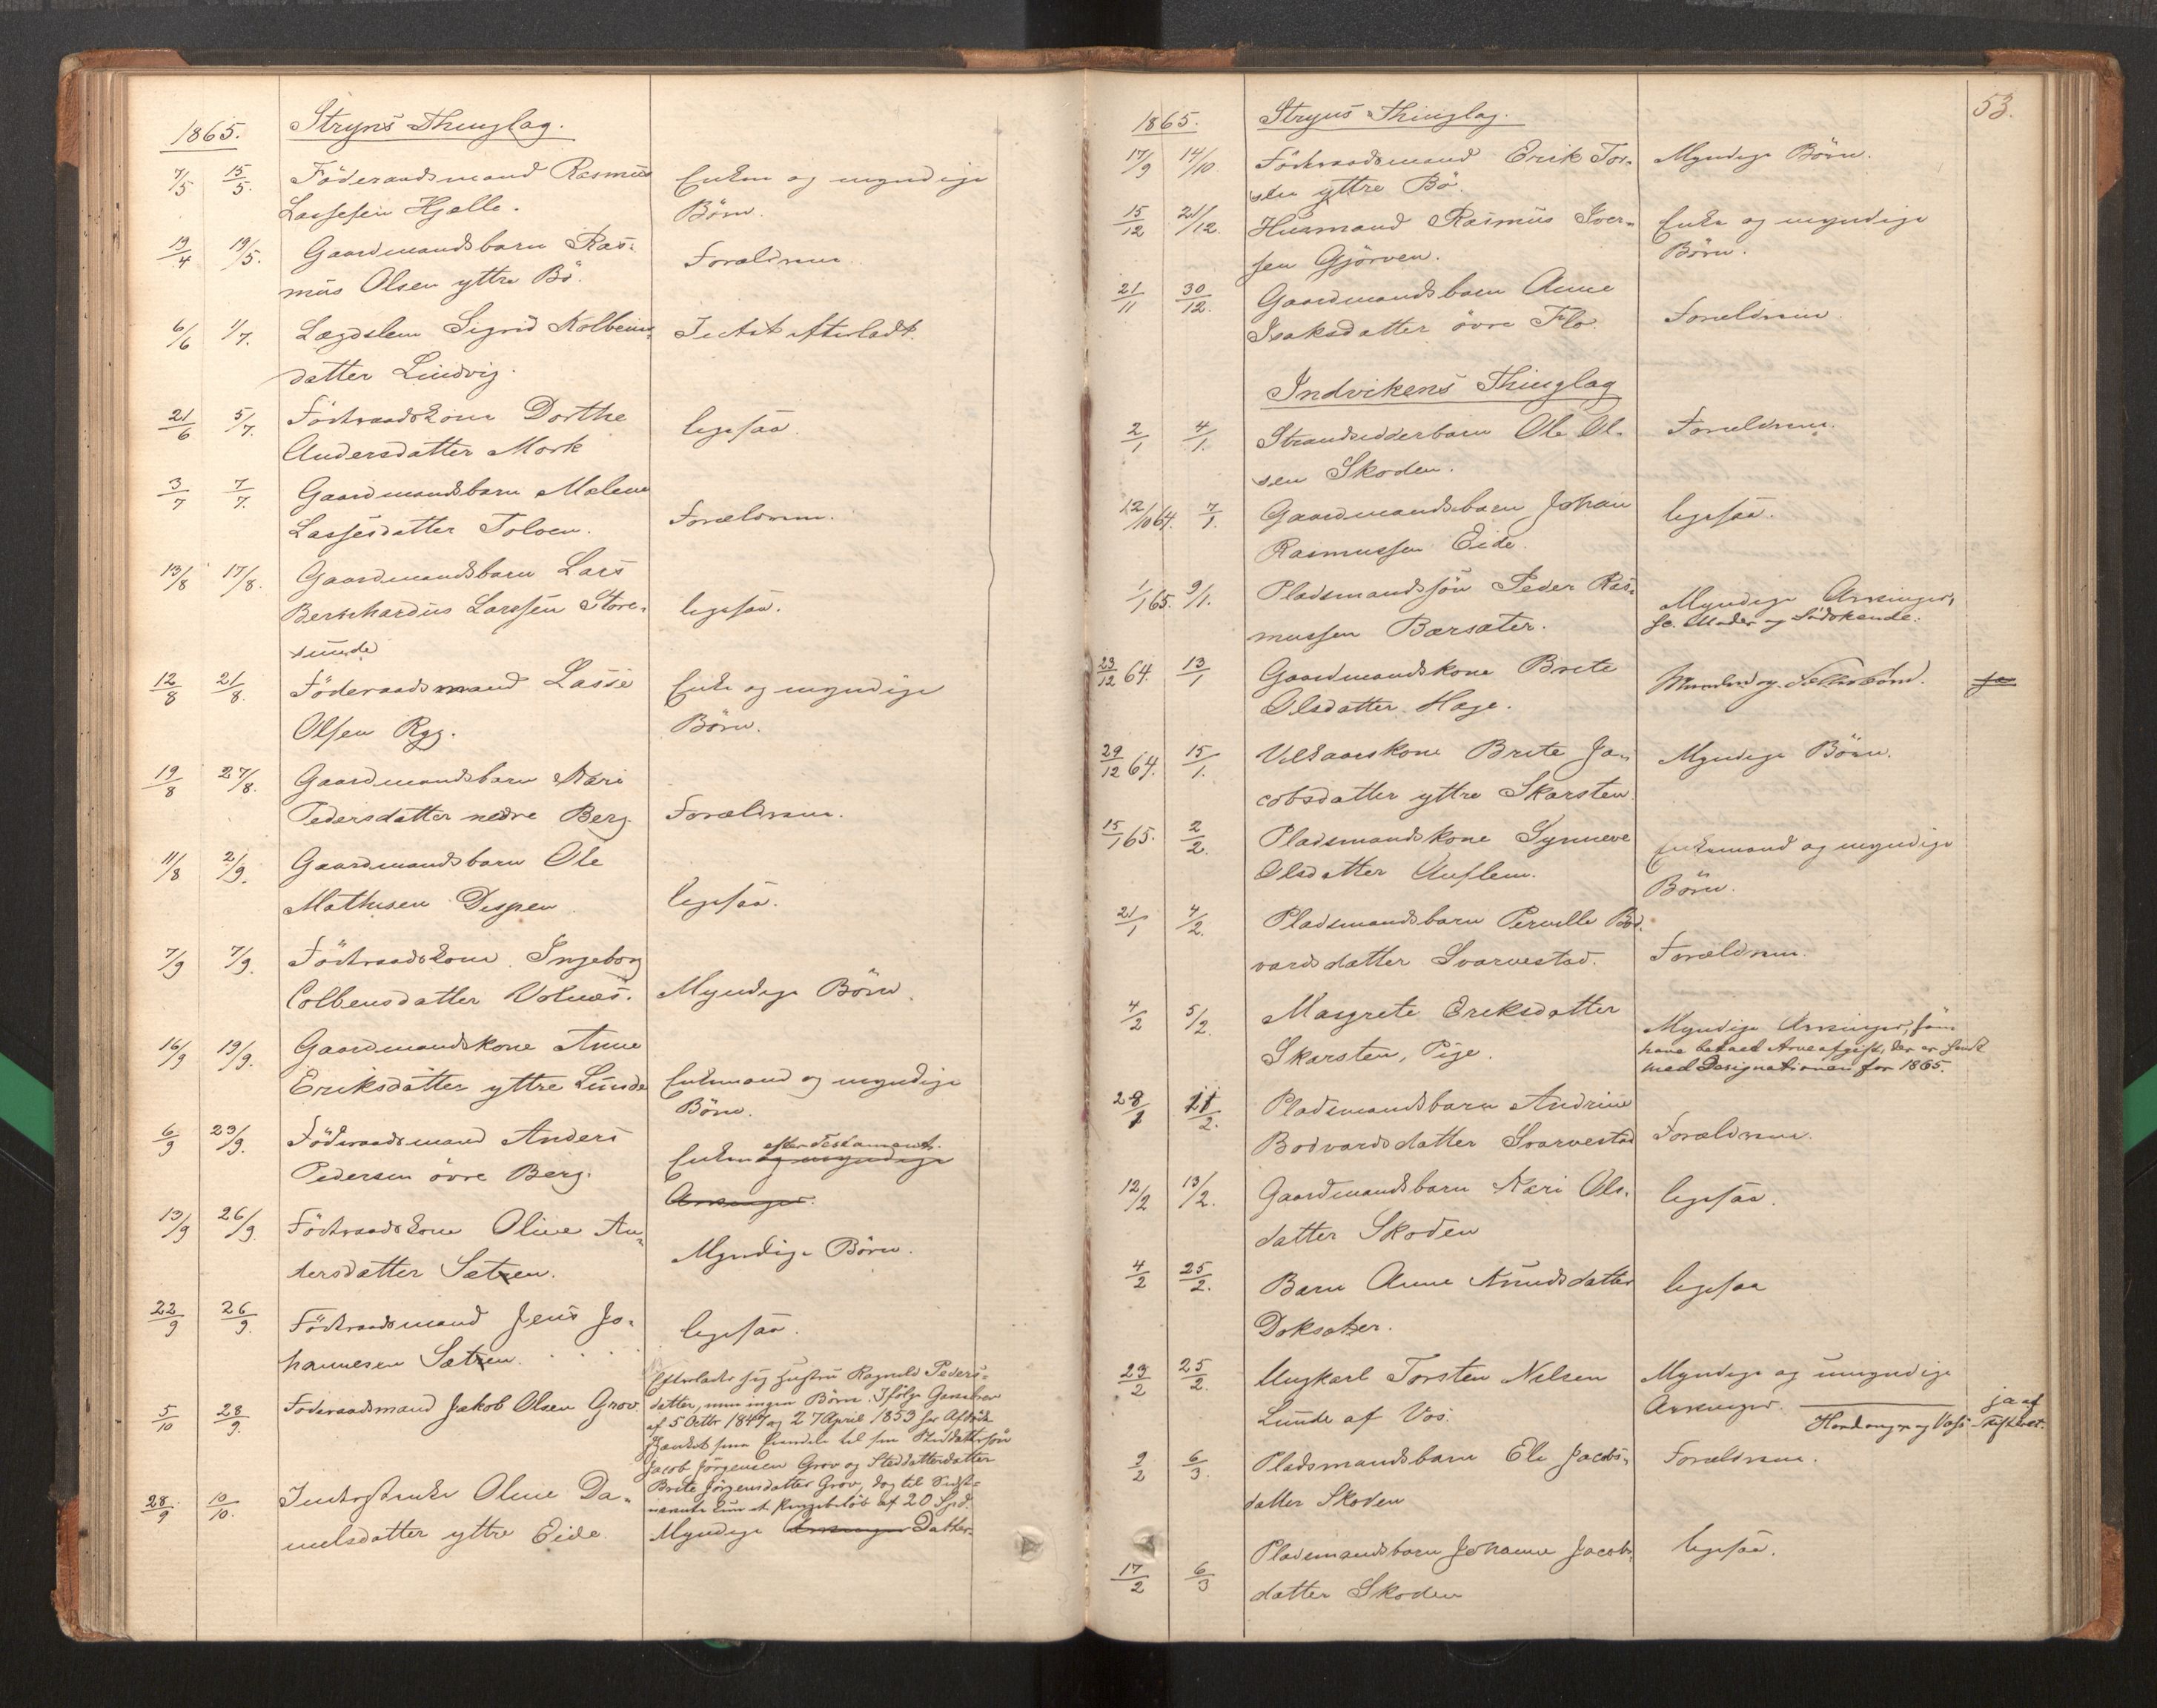 1865. Stryns Thinglag.
7/5 15/5. Föderaadsmand Rasmus Enken og myndige
Lassesen Hjelle. Börn.
19/4 19/5. Gaardmandsbarn Ras-
mus Olsen yttre Bö. Forældrene
6/6 1/7. Lægdslem Sigrid Kolbeins- Intet efterladt.
datter Lindvig.
21/6 5/7. Föderaadskone Dorthe
Andersdatter Mork ligesaa.
3/7 7/7. Gaardmandsbarn Malene
Lassesdatter Tolven. Forældrene.
13/8 17/8. Gaardmandsbarn Lars
Bernhardus Larssen Store- ligesaa.
sunde
12/8 21/8. Föderaadsmand Lasse Enke og myndige
Olsen Ryg. Börn.
19/8 27/8. Gaardmandsbarn Kari
Pedersdatter nedre Berg Forældrene.
11/8 2/9. Gaardmandsbarn Ole
Mathisen Dispen ligesaa.
7/9 7/9. Föderaadskone Ingeborg
Colbensdatter Volnes. Myndige Börn.
16/9 19/9. Gaardmandskone Anne
Eriksdatter yttre Lunde Enkemand og myndige
Börn.
6/9 23/9. Föderaadsmand Anders efter Testament.
Pedersen övre Berg. Enken og myndige
Arvinger.
13/9 26/9. Föderaadskone Oline An-
dersdatter Sætren. Myndige Börn.
22/9 26/9. Föderaadsmand Jens Jo-
hannesen Sætren. ligesaa.
5/10 28/9. Föderaadsmand Jakob Olsen Grov. Efterlader sig Hustru Ragnild Peders-
datter, men ingen Börn. Ifölge Gavebrev
af 5 Octbr 1847 og 27 April 1853 har Afdöde
skjænket sin Eiendele til sin Steddattersön
Jacob Jörgensen Grov og Steddatterdatter
Brite Jörgensdatter Grov, dog til Sidst-
nævnte kun et Pengebelöb af 20 Spd.
28/9 10/10. Inderstenke Oline Da-
nielsdatter yttre Eide. Myndige Arvinger Datter
53.
1865. Stryns Thinglag.
17/9 14/10. Föderaadsmand Erik Tor- Myndige Börn.
sten yttre Bö.
15/12 21/12. Husmand Rasmus Iver- Enke og myndige
sen Gjörven. Börn.
21/11 30/12. Gaardmandsbarn Anne
Isaksdatter övre Flo Forældrene.
Indvikens Thinglag
2/1 4/1. Strandsidderbarn Ole Ol- Forældrene.
sen Skoden.
12/10 64. 7/1. Gaardmandsbarn Johan ligesaa.
Rasmussen Eide.
1/1 65. 9/1. Pladsmandssön Peder Ras- Myndige Arvinger,
mussen Bærsæter. sc. Moder og Södskende.
23/12 64. 13/1 Gaardmandskone Brite
Olsdatter Hage. ja
29/12 64. 15/1. Vilkaarskone Brite Ja- Myndige Börn.
cobsdatter yttre Skarsten.
15/1 65. 2/2. Pladsmandskone Synneve Enkemand og myndige
Olsdatter Auflem. Börn.
21/1 4/2. Pladsmandsbarn Pernille Bod-
vardsdatter Svarvestad. Forældrene.
4/2 5/2. Margrete Eriksdatter Myndige Arvinger, som
Skarsten, Pige. have betalt Arveafgift, der er sendt
med Designationen for 1865.
28/1 11/2. Pladsmandsbarn Andrine
Bodvardsdatter Svarvestad Forældrene.
12/2 13/2. Gaardmandsbarn Kari Ols- ligesaa.
datter Skoden
4/2 25/2. Barn Anne Knudsdatter ligesaa
Doksæter.
23/2 25/2. Ungkarl Torsten Nilsen Myndige og umyndige
Lunde af Vos. Arvinger. ja af
Hardanger og Vos' Skifteret.
9/2 6/3. Pladsmandsbarn Eli Jacobs- Forældrene.
datter Skoden
17/2 6/3 Pladsmandsbarn Johanne Jacobs- ligesaa.
datter Skoden